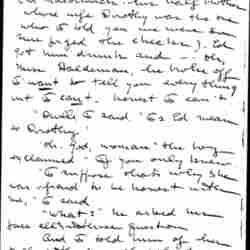 half brother
whose wife Dorothy was the one
who I told you we were
forged the checks). Ed
got him drunk and -- Oh,
Miss Haldeman, he broke off
I want to tell you everything
but I can't. honest I can't
"Well, I said "Is Ed mean
to Dorothy"
"Oh, God, woman" the boy
exclaimed "If you only knew
"I suppose that's why she
was afraid to be honest with
me," I said
"What?" he asked
face all question
And I told him of her